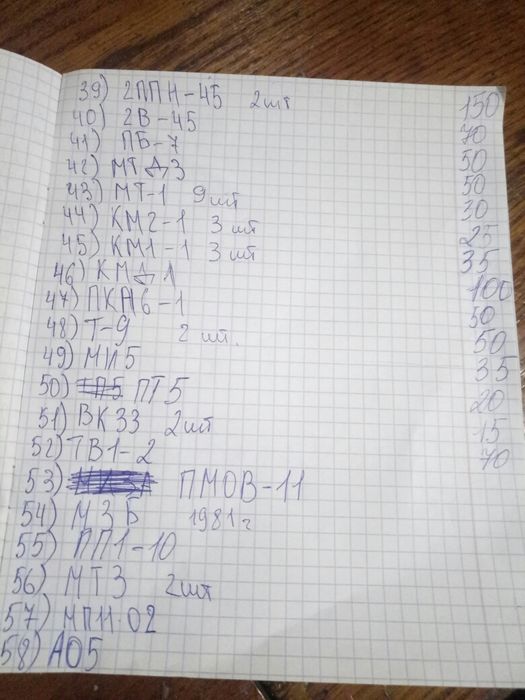 39) 2ППН-45 2шт 150
40) 2В-45 70
41) ПБ-7 50
42) МТДЗ 50
43) МТ-1 9шт 30
44) КМ2-1 3 шт 25
45) КМ1-1 3 шт 35
46) КМД1 100
47) ПКН6-1 50
48) Т-9 2 шт. 50
49) МИ5 35
50) ПТ5 20
51) ВК33 2шт 15
52) ТВ1-2 70
53) ПМОВ-11
54) МЗБ 1981г
55) ПП1-10
56) МТЗ 2шт
57) МПН-02
58) АО5